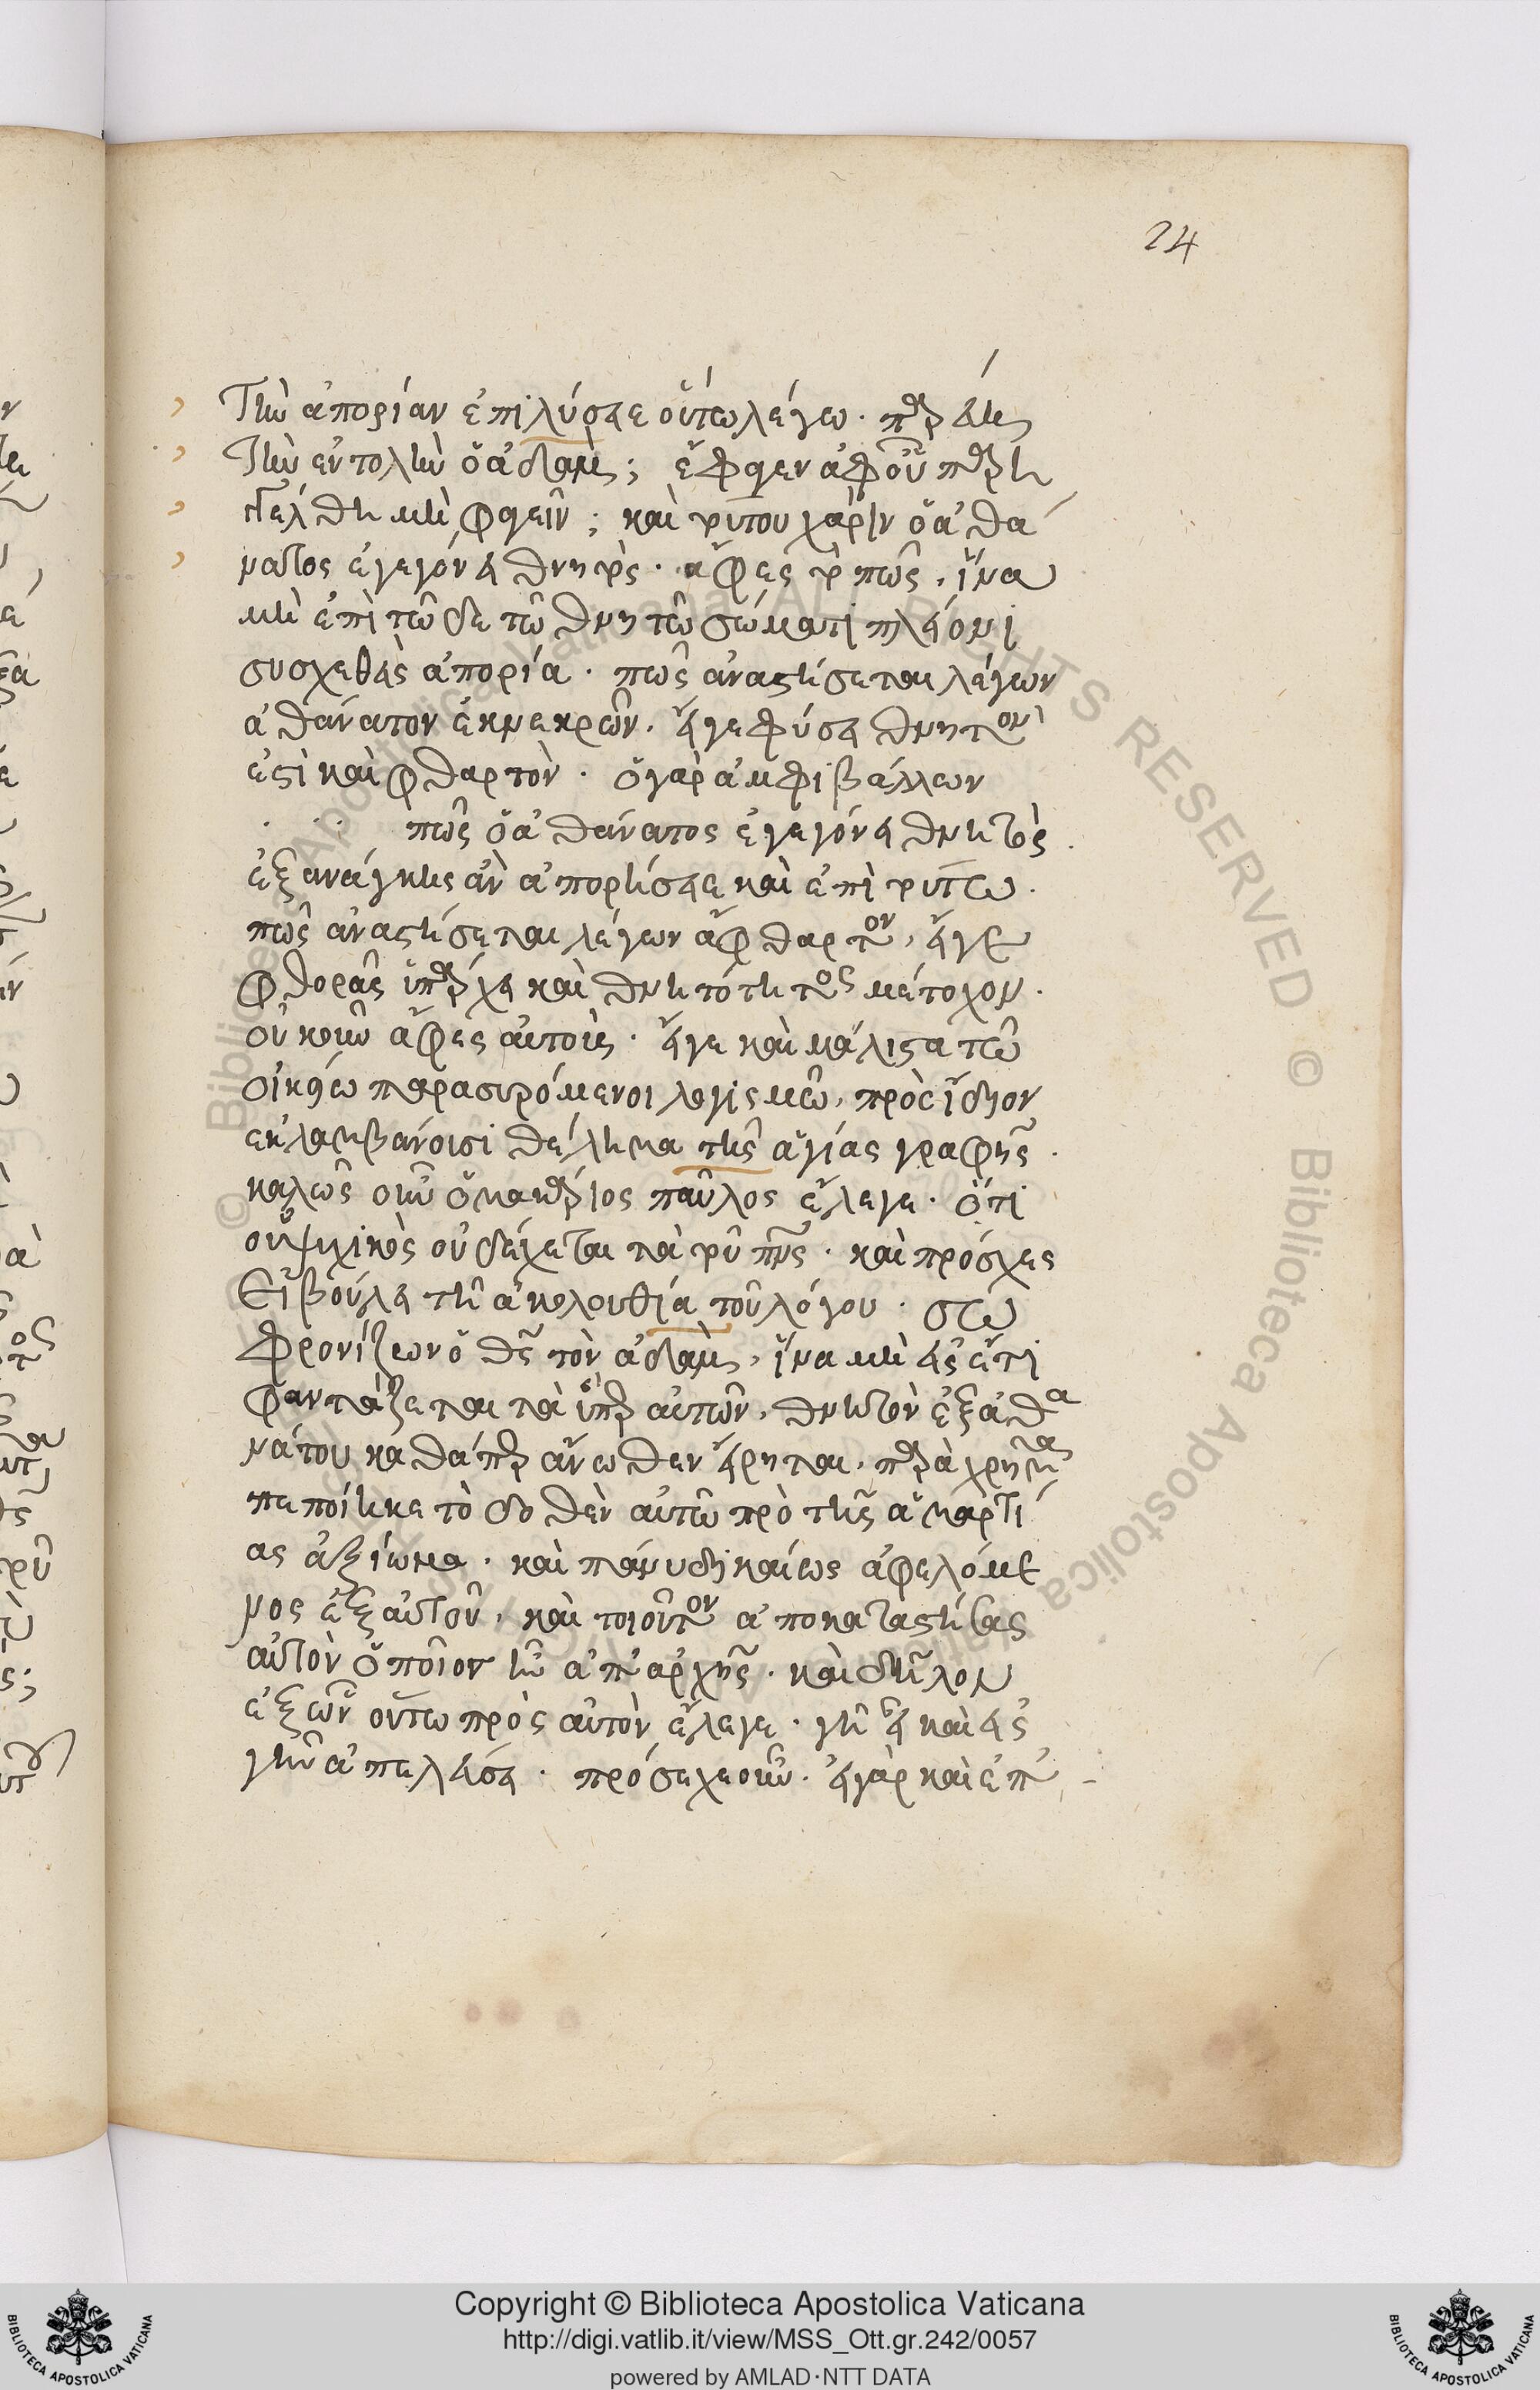 24
Τὴν ἀπορίαν ἐπιλύσαι οὕτω λέγω. παρέβη
Τὴν ἐντολὴν ὁ ἀδάμ; ἔφαγεν ἀφ' οὗ παρη
γγέλθη μὴ φαγεῖν; καὶ τούτου χάριν ὁ ἀθά
νατος ἐγεγόνει θνητός. ἄφες τὸ πῶς, ἵνα
μὴ ἐπὶ τῶδε τῶ θνητῶ σώματι πλείονι
συσχεθεὶς ἀπορία. πῶς ἀναστήσεται λέγων
ἀθάνατον ἐκ νεκρῶν. εἴγε φύσει θνητὸν
ἐστὶ καὶ φθαρτὸν. ὁ γὰρ ἀμφιβάλλων
πῶς ὁ ἀθάνατος ἐγεγόνει θνητὸς
ἐξ ανάγκης ἂν ἀπορήσειε καὶ ἐπὶ τούτω.
πῶς ἀναστήσεται λέγων ἄφθαρτον, εἴγε
φθορᾶς ὑπάρχει καὶ θνητότητος μέτοχον.
οὐκοῦν ἄφες αὐτοὺς. εἴγε καὶ μάλιστα τῶ
οἰκείω παρασυρόμενοι λογισμῶ, πρὸς ἴδιον
εκλαμβάνουσι θέλημα τῆς ἁγίας γραφῆς.
καλῶς οὖν ὁ μακάριος παῦλος ἔλεγε. ὅτι
ὁ ψυχικὸς οὐ δέχεται τὰ τοῦ πνς. καὶ πρόσχες
Εἰ βούλει τῆ ἀκολουθία τοῦ λόγου. σω
φρονίζων ὁ θς τὸν ἀδάμ, ἵνα μὴ εἰς ἔτι
φαντάζεται τὰ ὑπὲρ αὐτὸν, θνητὸν ἐξ ἀθα
νάτου καθάπερ ἄνωθεν εἴρηται, παραχρῆμα
πεποίηκε τὸ δοθὲν αὐτῶ πρὸ τῆς ἁμαρτί
ας ἀξίωμα. καὶ πάνυ δικαίως ἀφελόμε
νος ἐξ αὐτοῦ, καὶ τοιοῦτον ἀποκαταστήσας
αὐτὸν ὁποῖον ἦν ἀπ' ἀρχῆς. καὶ δῆλον
ἐξ ὧν οὕτω πρὸς αὐτὸν ἔλεγε. γῆ εἶ καὶ εἰς
γῆν ἀπελεύση. πρόσεχε οὖν. εἰ γὰρ καὶ ἐπ'
Copyright © Biblioteca Apostolica Vaticana
http://digi.vatlib.it/view/MSS_Ott.gr.242/0057
powered by AMLAD·NTT DATA